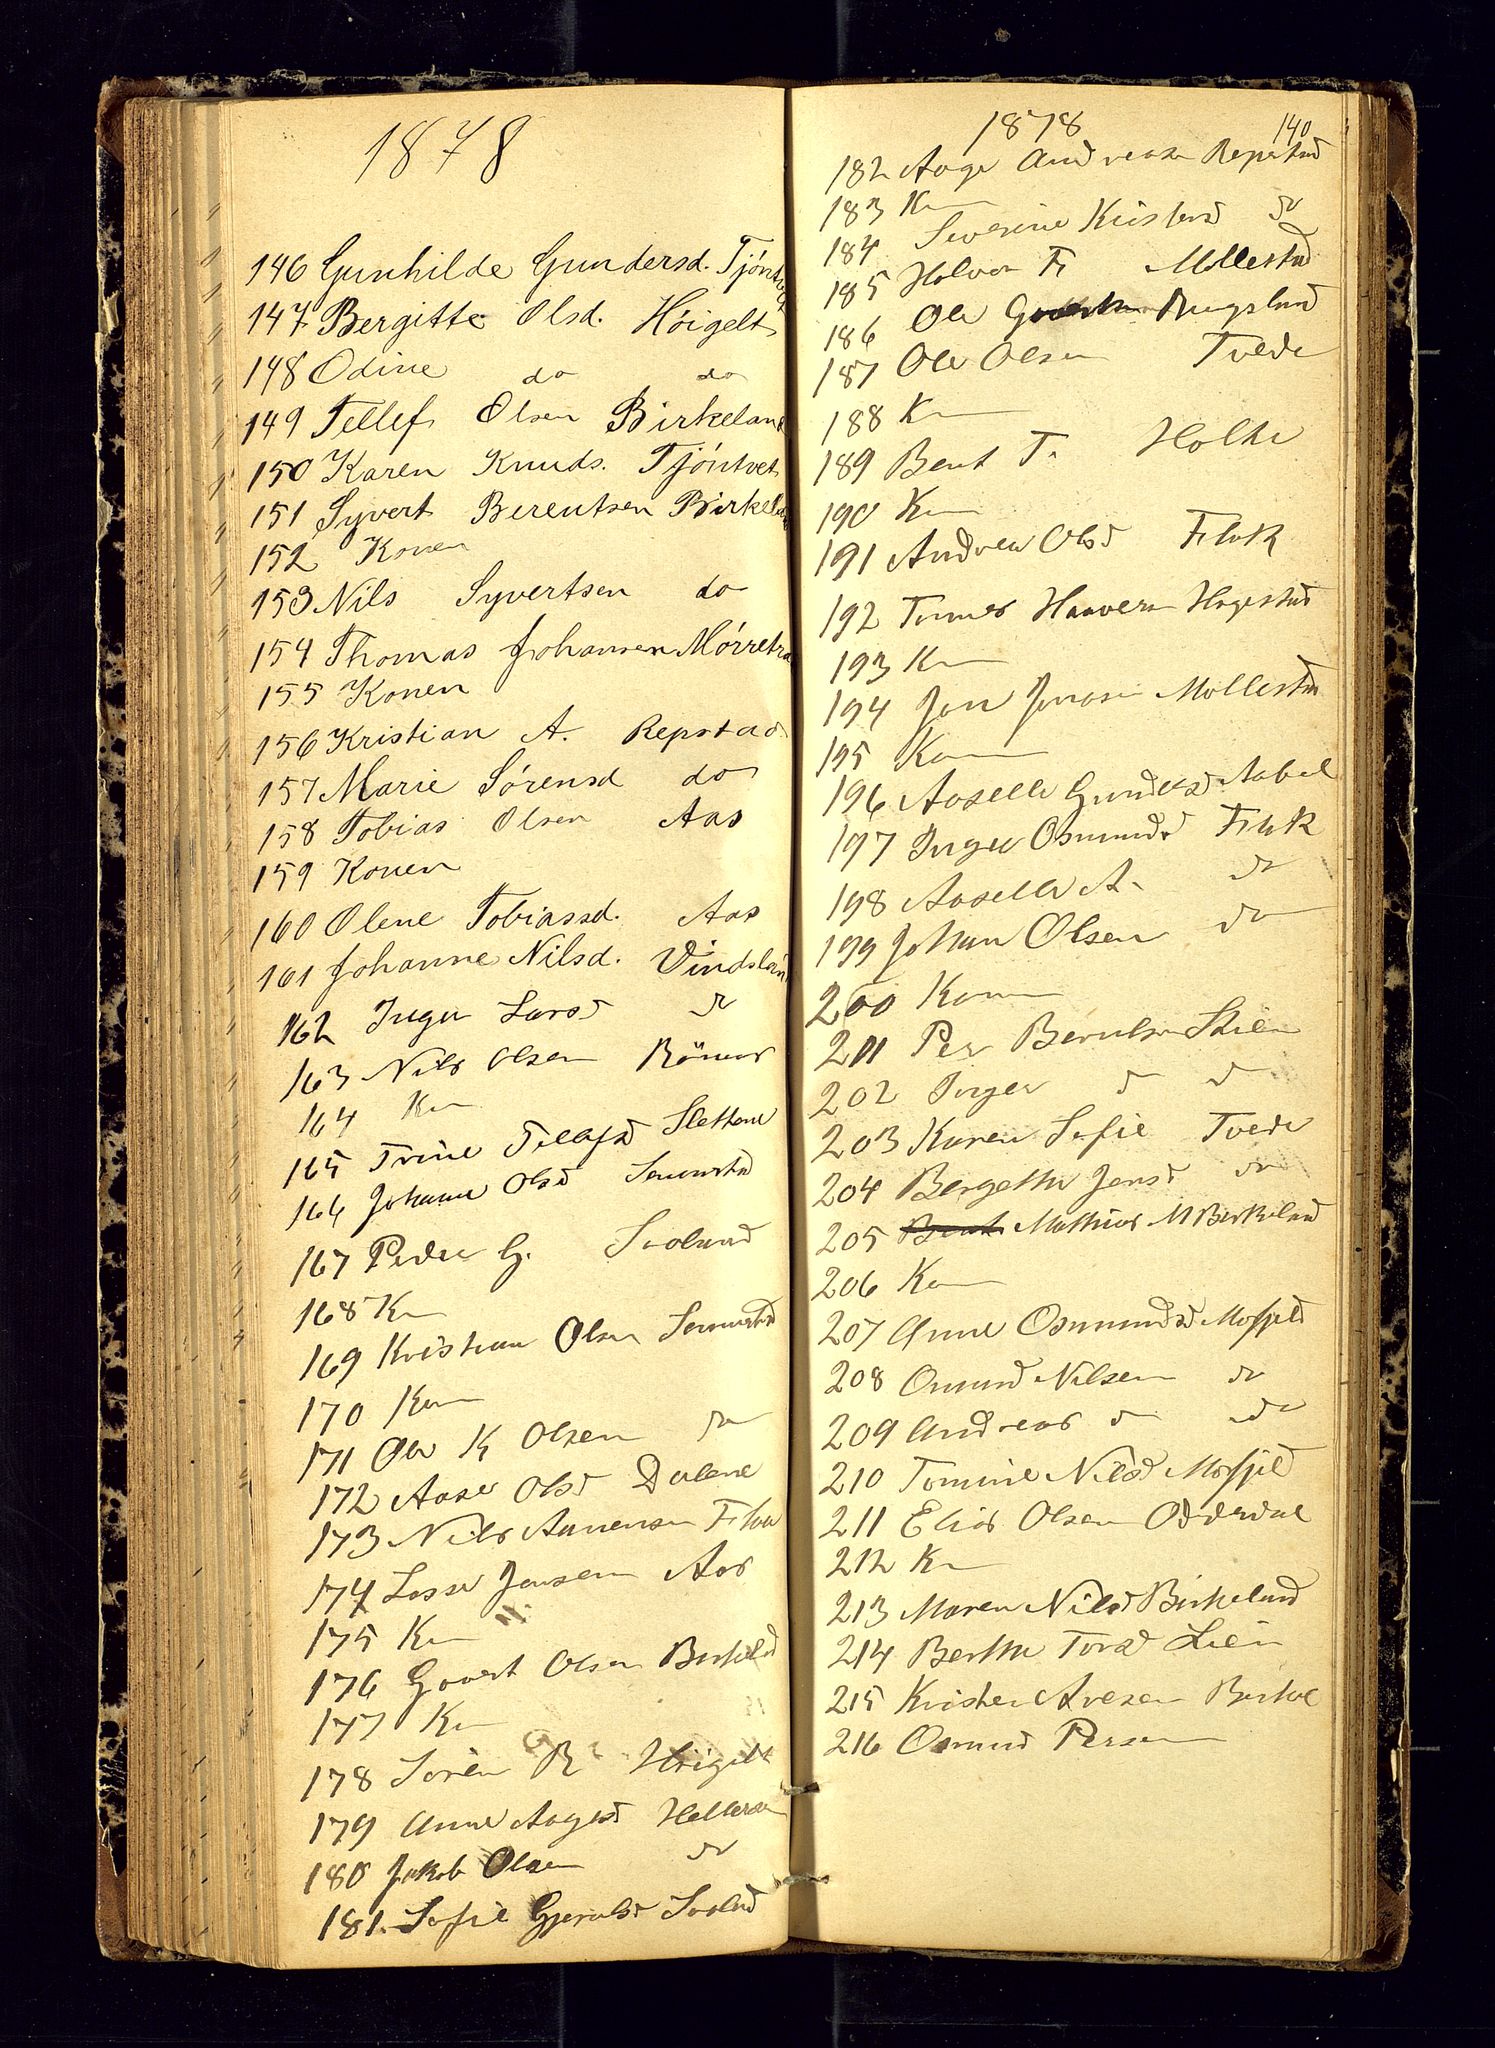 1878
146 Gunhilde Gundersd. Tjöntvet
147 Bergitte Olsd. Höigelt
148 Odine do do
149 Tellef Olsen Birkeland
150 Karen Knuds. Tjöntvet
151 Syvert Berentsen Birkeland
152 Konen
153 Nils Syvertsen do
154 Thomas Johansen
155 Konen
156 Kristian A. Repstad
157 Marie Sörensd do
158 Tobias Olsen Aas
159 Konen
160 Olene Tobiassd. Aas
161 Johanne Nilsd. Vindsland
162 Inger Larsd do
163 Nils Olsen
164 Kn
165 Trine Tellefsd Slettene
166 Johanne Olsd Senumstad
167 Peder G.
168 Kn
169 Kristian Olsen Senumstad
170 Kon
171 Ole K Olsen do
172 Aase Olsd Dalene
173 Nils Aanensen
174 Lasse Jensen Aas
175 Kn
176 Govert Olsen Birkeld
177 Kn
178 Sören R Höigelt
179 Anne Aagesd
180 Jakob Olsen do
181. Sofie Gjeruls
1878 140
182 Aage Andreasen Repstad
183 Kn
184 Severine Kristensd do
185 Halvor F. Mollestad
186 Ole Rugsland
187 Ole Olsen Tvede
188 K
189 Bent T. Holte
190 Kn
191 Andrea Olsd Flak
192 Tomas Haaversen Hagestad
193 Kn
194 Jon Jonasen Mollestad
195 Kon
196 Aaselle Gundersd. Aabel
197 Inger Osmundsd Flak
198 Aaselle A. do
199 Johan Olsen do
200 Konen
201 Per Berulsen Skien
202 Inger d do
203 Karen Sofie Tvede
204 Bergethe Jensd do
205 Bent Mathias M Birkeland
206 Kon
207 Anne Osmundsd Mosfjeld
208 Osmund Nilsen do
209 Andreas d do
210 Tomine Nilsd Mosfjeld
211 Elias Olsen Oddersdal
212 Kn
213 Maren Nilsd Birkeland
214 Berthe Torsd Lien
215 Kristen Avesen Birkel
216 Osmund Persen